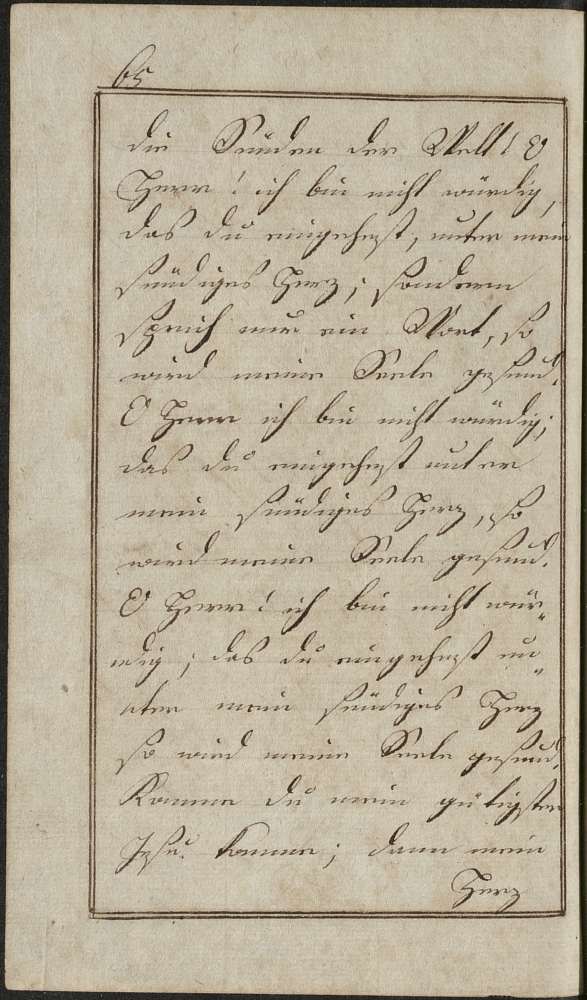 65
die Sünden der Welt! O
Herr! ich bin nicht würdig,
das du eingehest, unter mein
sündiges Herz; sondern
sprich nur ein Wort, so
wird meine Seele gesund.
O Herr ich bin nicht würdig;
das du eingehest unter
mein sündiges Herz, so
wird meine Seele gesund.
O Herr! ich bin nicht wür„
rdig; das du eingehest un„
nter mein sündiges Herz
so wird meine Seele gesund.
Komme du mein gütigster
Jesu. komme; dann mein
Herz